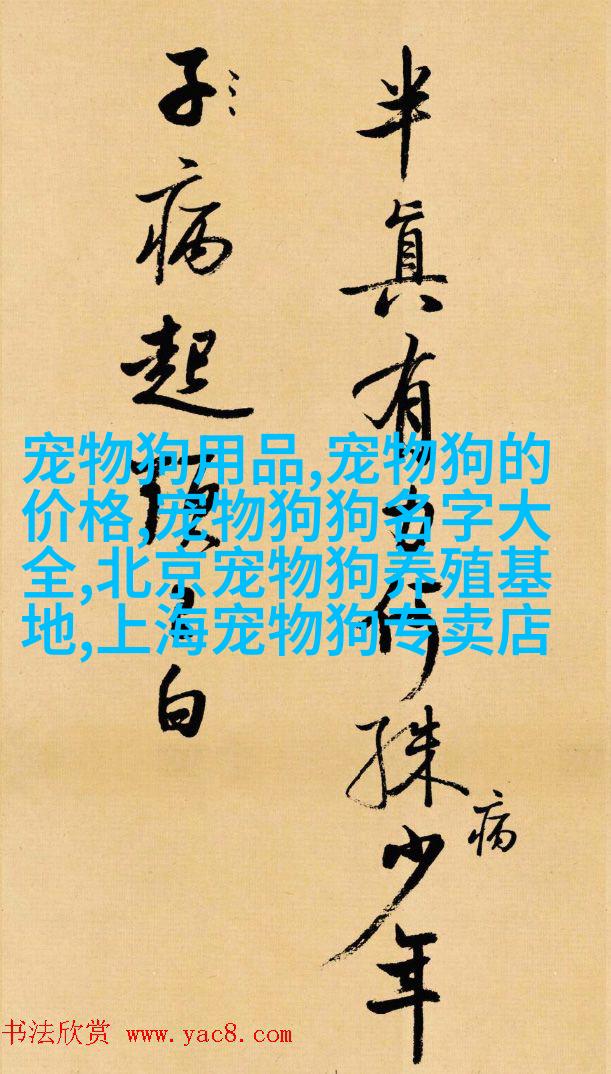 半真有何殊少年
病
子病起白
宠物狗用品,宠物狗的
价格,宠物狗狗名字大
全,北京宠物狗养殖基
地,上海宠物狗专卖店
书法欣赏 www.yac8.com